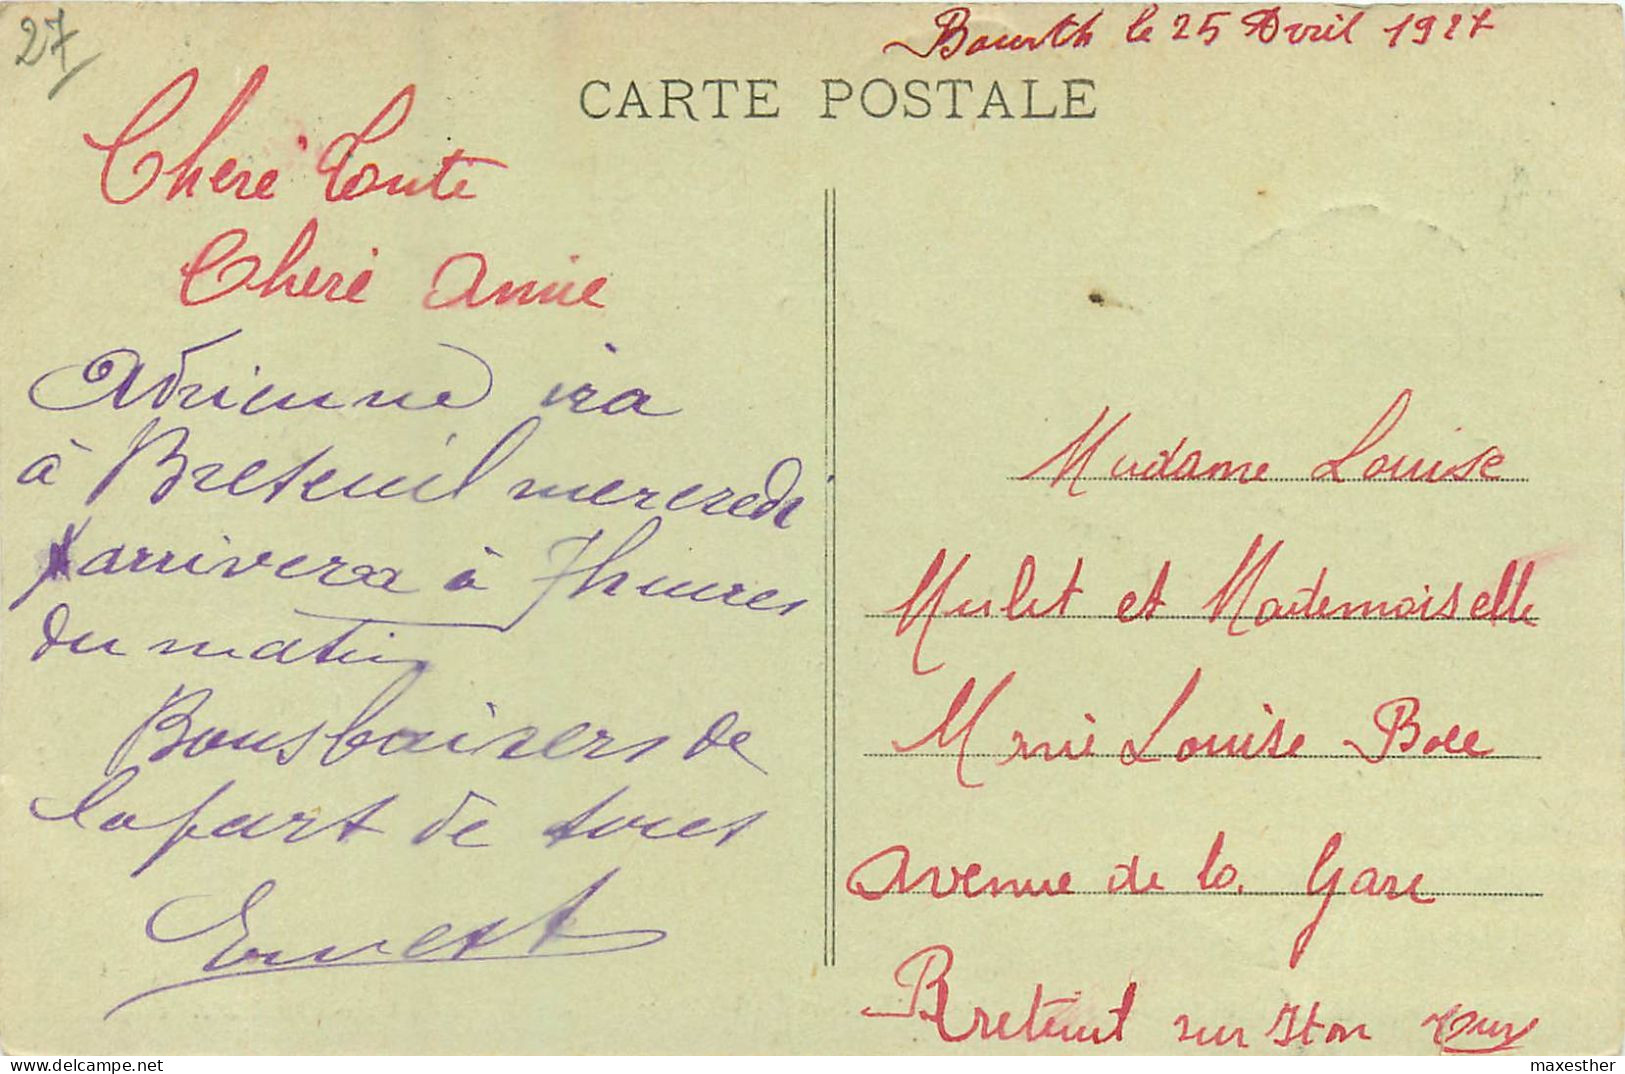 27
Bourth le 25 Avril 1927
CARTE POSTALE
Cheré Tante
Cheré Amie
Adrienne ira
à Breteuil mercredi
arrivera à 7 heures
du matin
Bons baisers de
la part de tous
Ernest
Madame Louise
Mulet et Mademoiselle
Marie Louise
Avenue de la Gare
Breteuil sur Iton Eure
maxesther